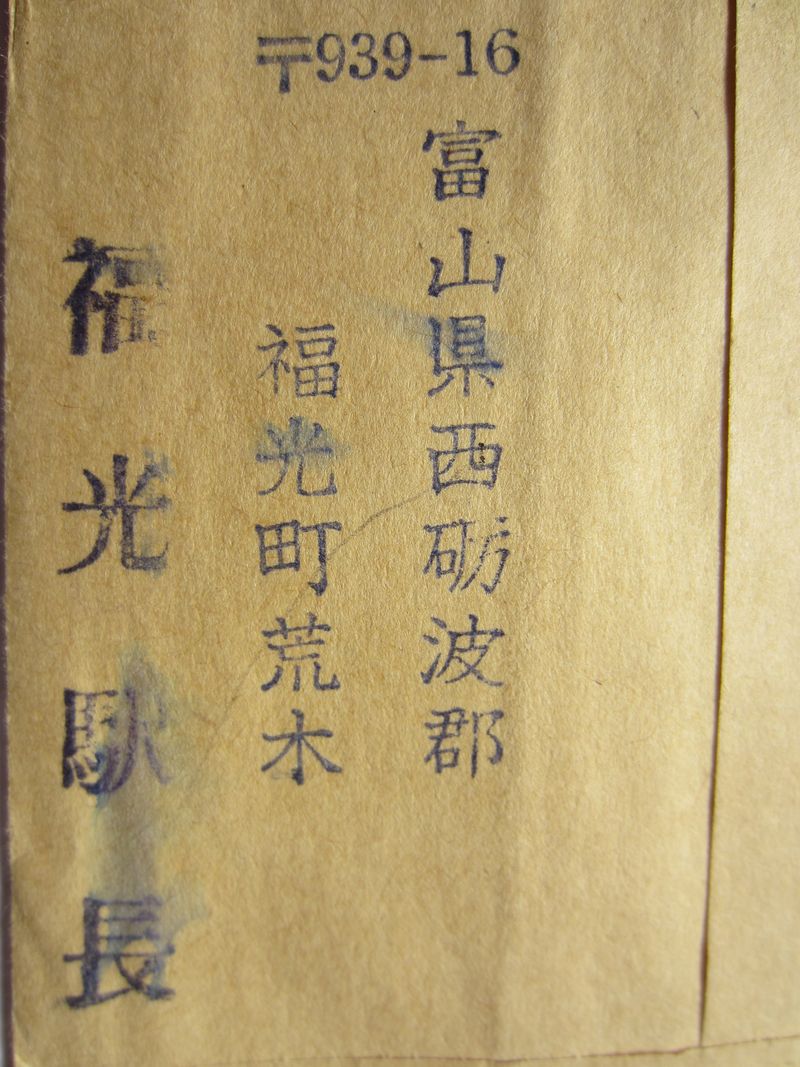 〒939-16
富山県西砺波郡
福光町荒木
福光駅長